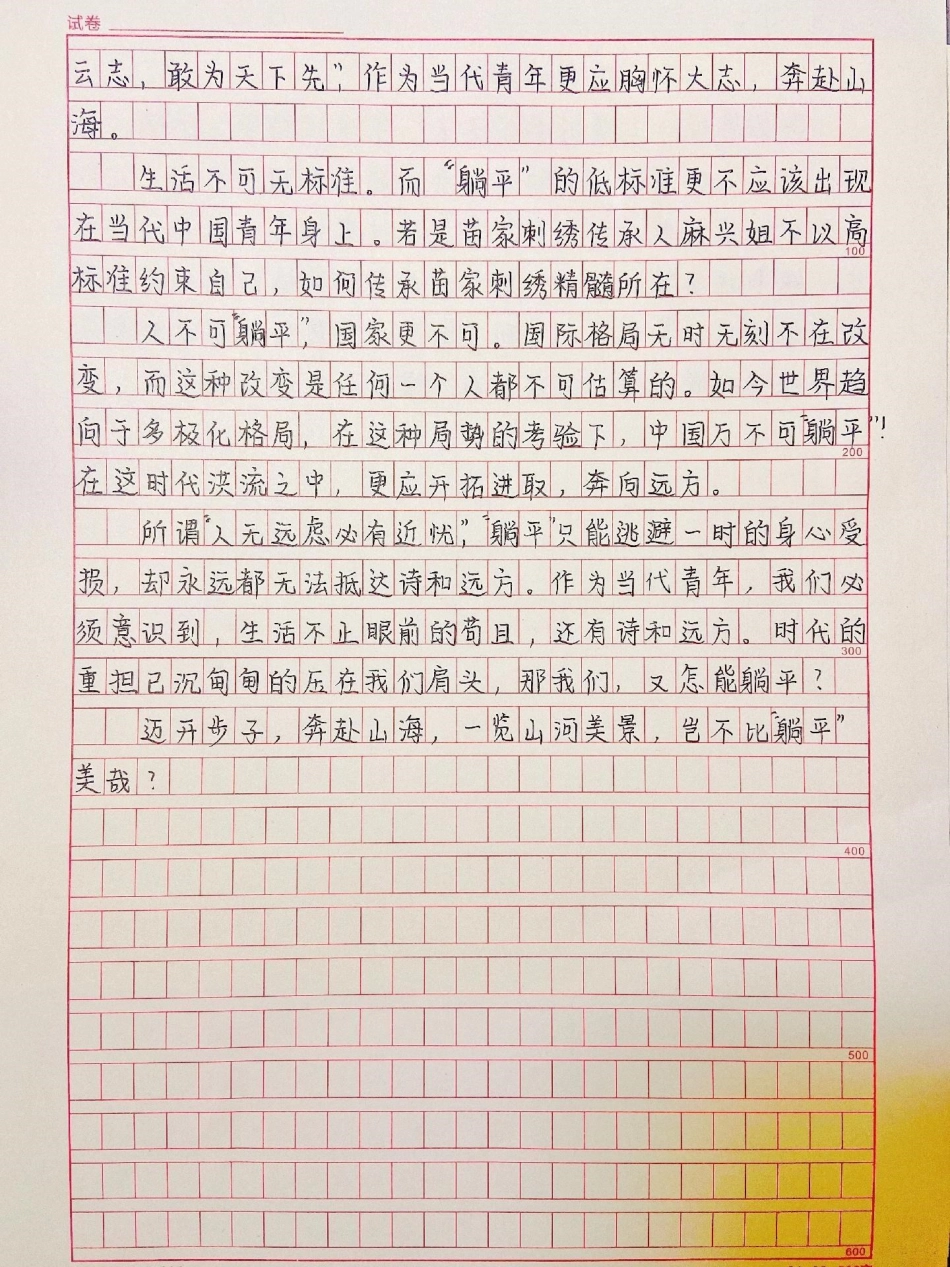 试卷
云志，敢为天下先”，作为当代青年更应胸怀大志，奔赴山
海。
生活不可无标准。而“躺平”的低标准更不应该出现
在当代中国青年身上。若是苗家刺绣传承人麻兴姐不以高
100
标准约束自己，如何传承苗家刺绣精髓所在？
人不可“躺平”，国家更不可。国际格局无时无刻不在改
变，而这种改变是任何一个人都不可估算的。如今世界趋
向于多极化格局，在这种局势的考验下，中国万不可“躺平”！
200
在这时代洪流之中，更应开拓进取，奔向远方。
所谓“人无远虑必有近忧”，“躺平”只能逃避一时的身心受
损，却永远都无法抵达诗和远方。作为当代青年，我们必
须意识到，生活不止眼前的苟且，还有诗和远方。时代的
300
重担已沉甸甸的压在我们肩头，那我们，又怎能躺平？
迈开步子，奔赴山海，一览山河美景，岂不比“躺平”
美哉？
400
500
600